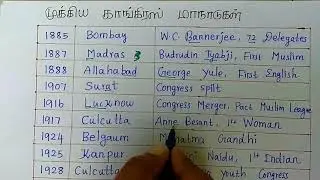 முக்கிய காங்கிரஸ் மாநாடுகள்
1885 Bombay W.C. Bannerjee, 72 Delegates
1887 Madras 3 Budrudin Tyabji, First Muslim
1888 Allahabad George Yule, First English
1907 Surat Congress split
1916 Lucknow Congress Merger, Pact Muslim League
1917 Culcutta Anne Besant, 1st Woman
1924 Belgaum Gandhi
1925 Kanpur Naidu, 1st Indian
1928 Culcutta Youth Congress